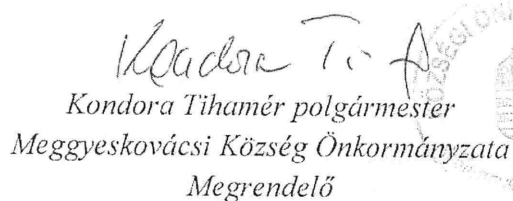 Kondora Ti
Kondora Tihamér polgármester
Meggyeskovácsi Község Önkormányzata
Megrendelő